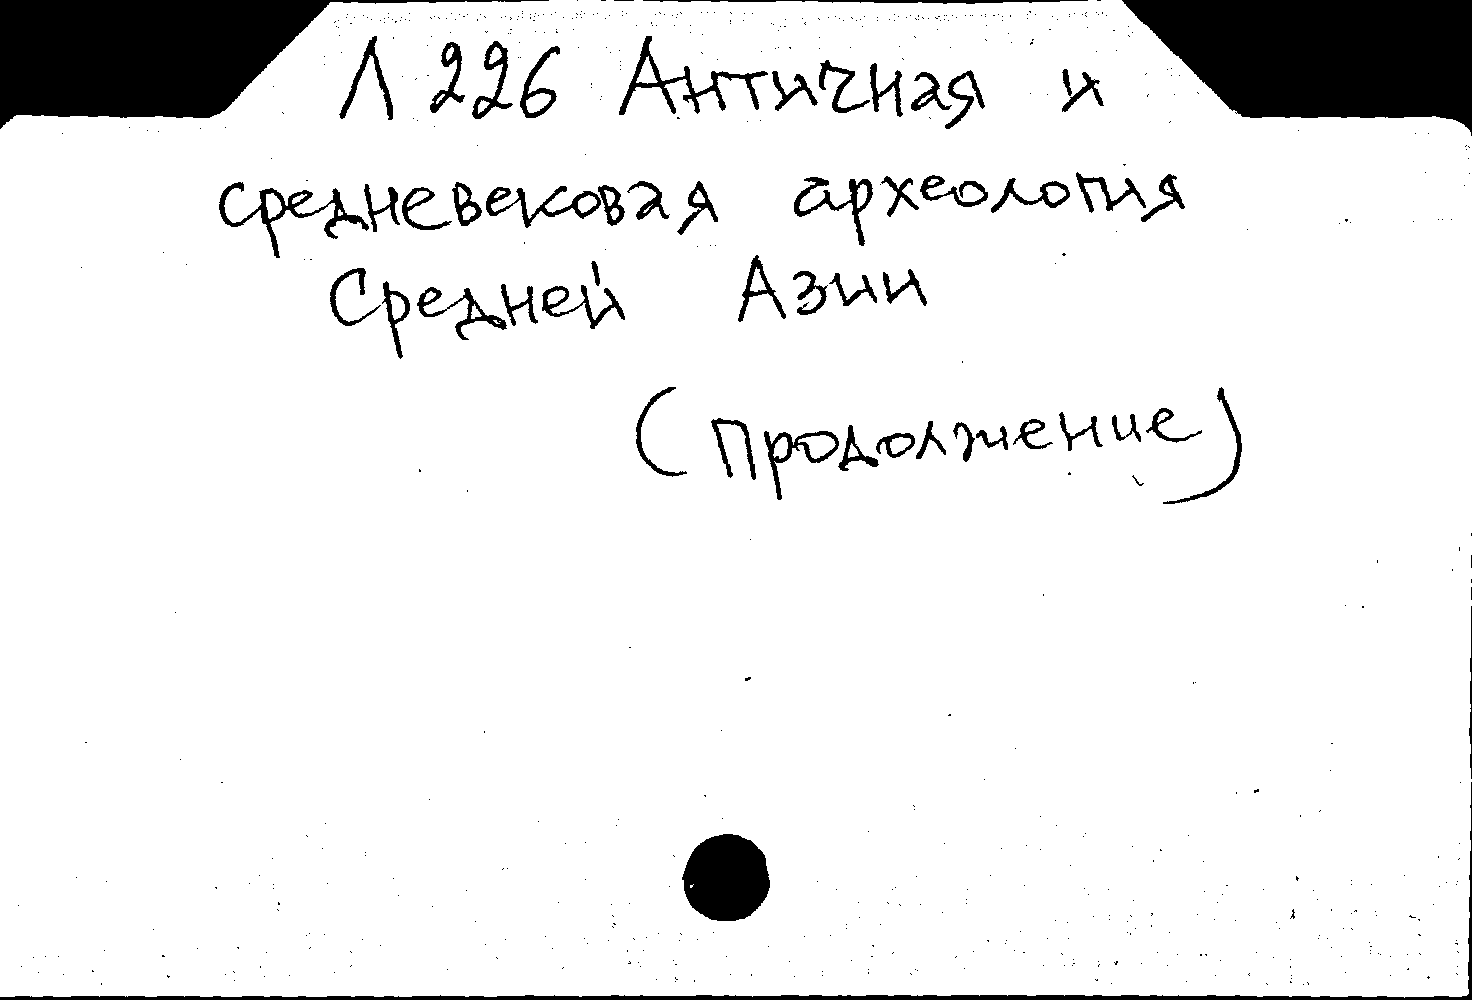 Л 226 Античная и
средневековая археология
Средней Азии
(продолжение)